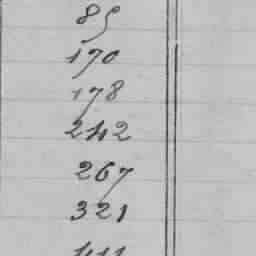 85
170
178
242
267
321
411